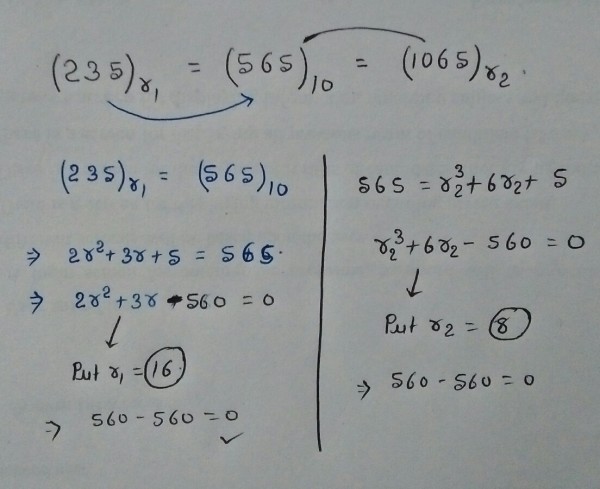 (235)r₁ = (565)₁₀ = (1065)r₂.
(235)r₁ = (565)₁₀
⇒ 2r²+3r+5 = 565.
⇒ 2r²+3r-560 = 0
↓
Put r₁ = 16
⇒ 560-560 = 0 ✓
565 = r₂³+6r₂+5
r₂³+6r₂-560 = 0
↓
Put r₂ = 8
⇒ 560-560 = 0